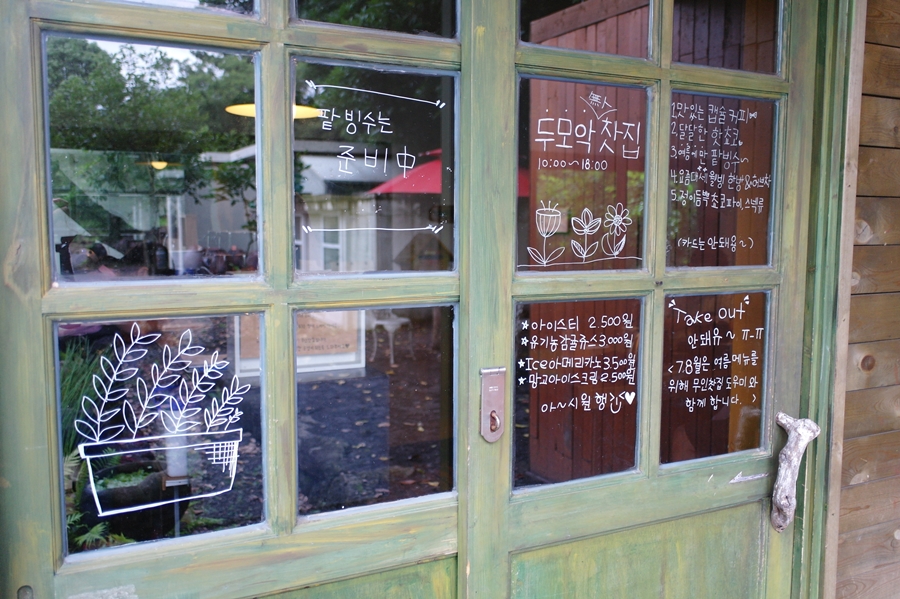 팥빙수는
준비中
無人
두모악 찻집
10:00~18:00
1.맛있는 캡슐커피
2.달달한 핫쵸코
3.여름에만 팥빙수~
4.요즘대세 월빙 한방&허브차
5.정이듬뿍 초코파이, 스넥류
(카드는 안돼용~)
★아이스티 2.500원
★유기농감귤쥬스 3000원
★Ice아메리카노 3.500원
★망고아이스크림 2.500원
아~시원행
Take out
안돼유~ ㅠ-ㅠ
<7.8월은 여름메뉴를
위해 무인찻집 도우미와
함께 합니다. >